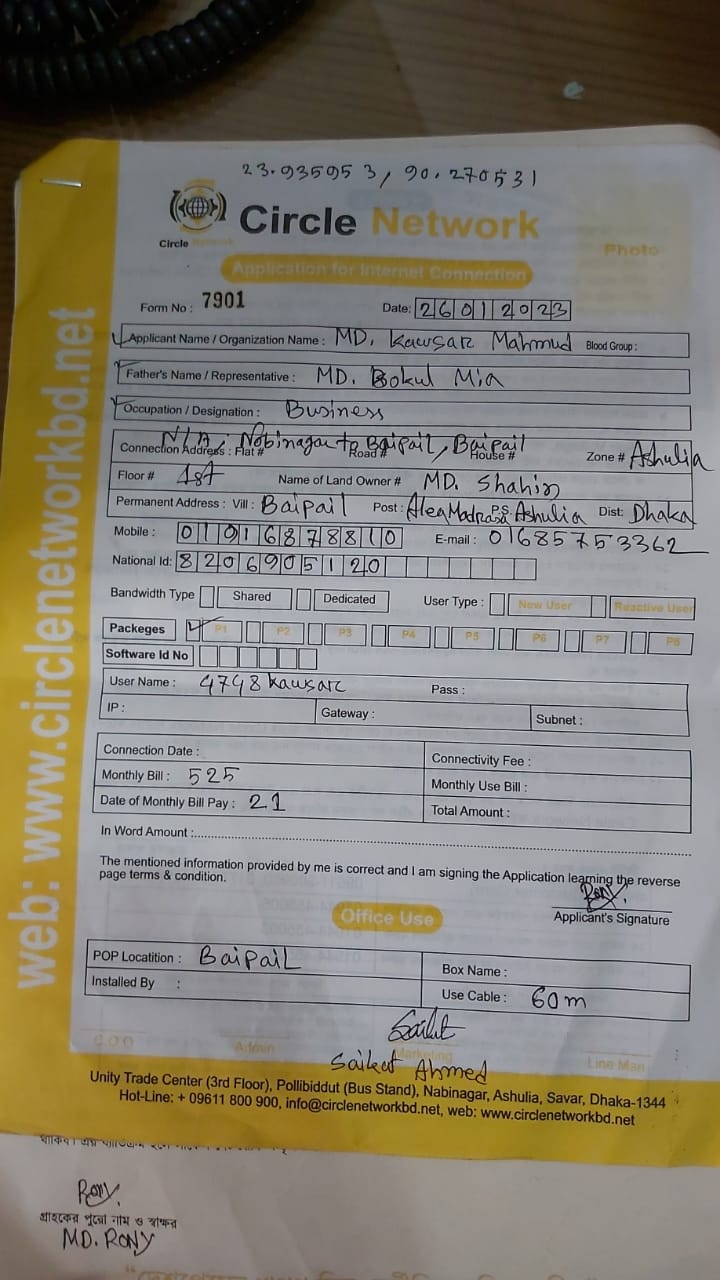 23.935953, 90.270531
Circle Network
Circle Network
Photo
Application for Internet Connection
Form No : 7901
Date: 26012023
Applicant Name / Organization Name : MD. Kawsar Mahmud Blood Group :
Father's Name / Representative : MD. Bokul Mia
Occupation / Designation : Business
N/A, Nobinagar to Baipail, Baipail
Connection Address : Flat # Road # House # Zone # Ashulia
Floor # 1st Name of Land Owner # MD. Shahin
Permanent Address : Vill : Baipail Post : Alea Madrasa P.S. Ashulia Dist: Dhaka
Mobile : 01916878810 E-mail : 01685753362
National Id: 8206905120
Bandwidth Type Shared Dedicated User Type : New User Reactive User
Packeges P1 P2 P3 P4 P5 P6 P7 P8
Software Id No
User Name : 4748kawsar Pass :
IP : Gateway : Subnet :
Connection Date : Connectivity Fee :
Monthly Bill : 525 Monthly Use Bill :
Date of Monthly Bill Pay : 21 Total Amount :
In Word Amount :
The mentioned information provided by me is correct and I am signing the Application learning the reverse
page terms & condition.
Rony.
Applicant's Signature
Office Use
POP Locatition : Baipail Box Name :
Installed By : Use Cable : 60m
Saikat
C.O.O Admin Marketing Line Man
Saikat Ahmed
Unity Trade Center (3rd Floor), Pollibiddut (Bus Stand), Nabinagar, Ashulia, Savar, Dhaka-1344
Hot-Line: + 09611 800 900, info@circlenetworkbd.net, web: www.circlenetworkbd.net
web: www.circlenetworkbd.net
Rony.
গ্রাহকের পুরো নাম ও স্বাক্ষর
MD. RONY